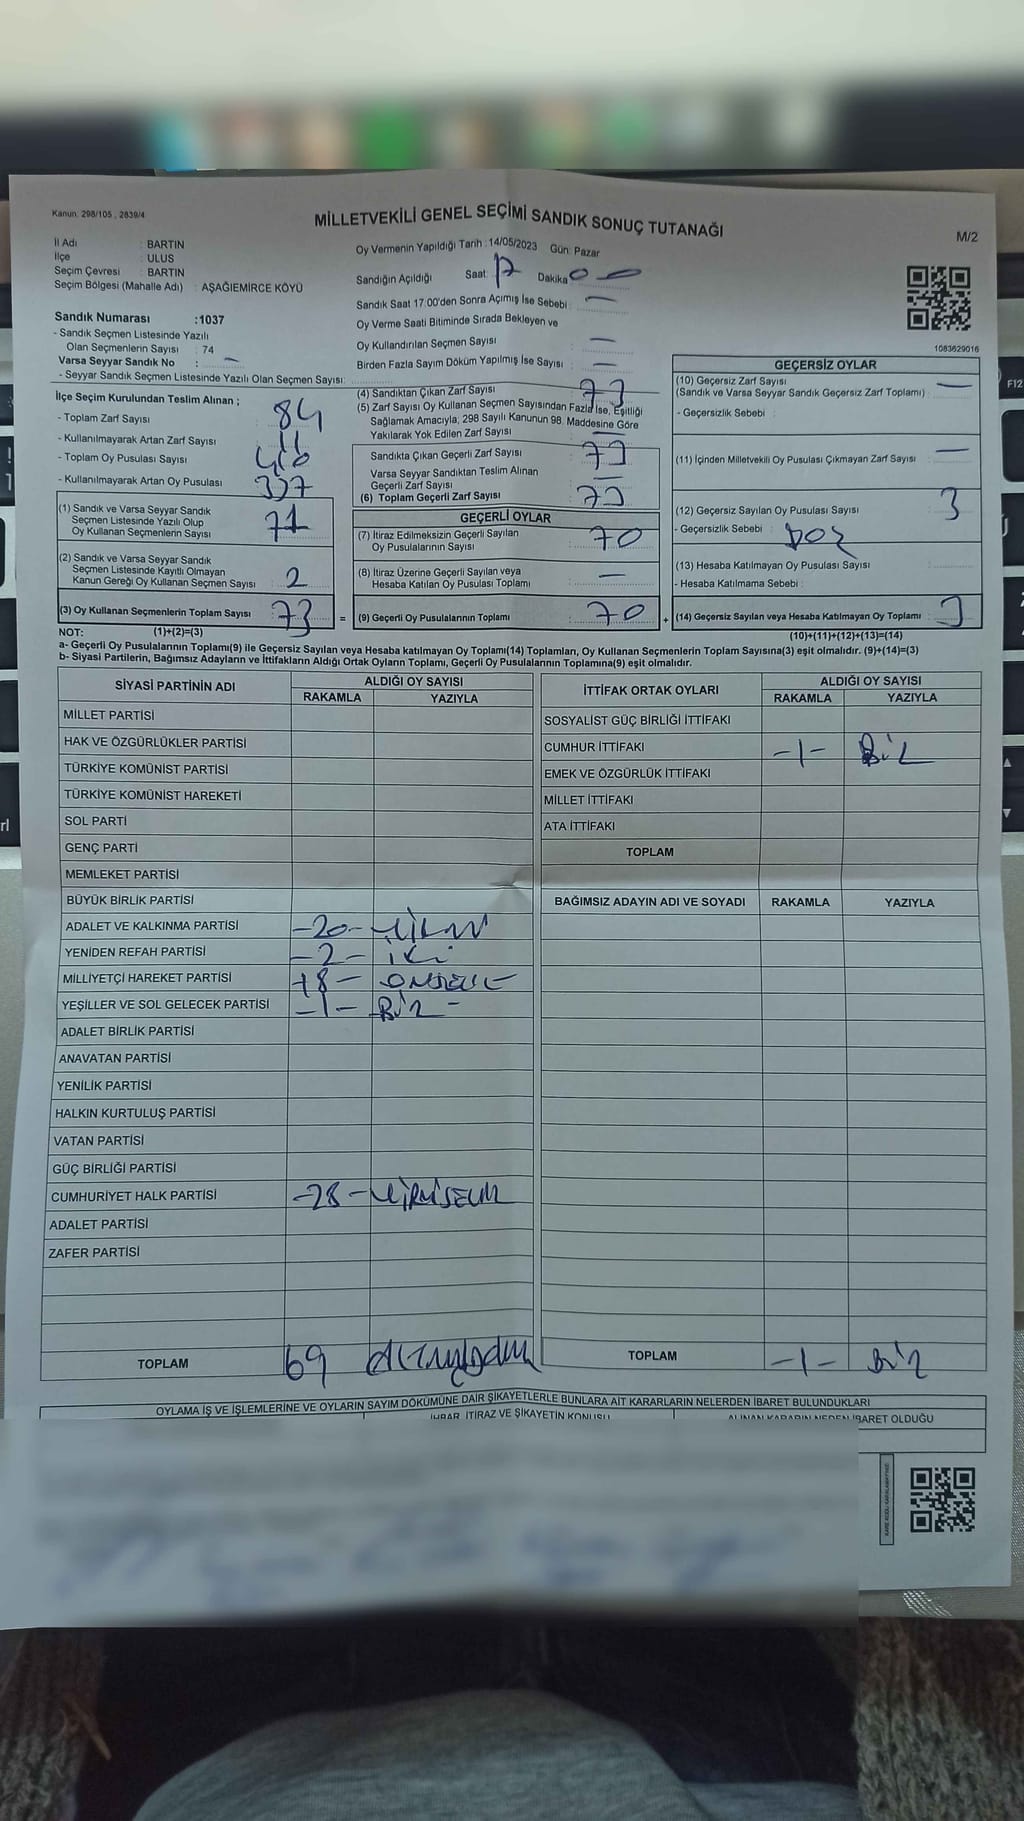 Kanun. 298/105 , 2839/4
MİLLETVEKİLİ GENEL SEÇİMİ SANDIK SONUÇ TUTANAĞI
M/2
İl Adı : BARTIN
İlçe : ULUS
Seçim Çevresi : BARTIN
Seçim Bölgesi (Mahalle Adı) : AŞAĞIEMİRCE KÖYÜ
Sandık Numarası :1037
- Sandık Seçmen Listesinde Yazılı
Olan Seçmenlerin Sayısı : 74
Varsa Seyyar Sandık No : —
- Seyyar Sandık Seçmen Listesinde Yazılı Olan Seçmen Sayısı:
Oy Vermenin Yapıldığı Tarih : 14/05/2023 Gün: Pazar
Sandığın Açıldığı Saat: 17 Dakika 00
Sandık Saat 17.00'den Sonra Açımış İse Sebebi : —
Oy Verme Saati Bitiminde Sırada Bekleyen ve
Oy Kullandırılan Seçmen Sayısı —
Birden Fazla Sayım Döküm Yapılmış İse Sayısı : —
1083629016
İlçe Seçim Kurulundan Teslim Alınan ;
- Toplam Zarf Sayısı : 84
- Kullanılmayarak Artan Zarf Sayısı : 11
- Toplam Oy Pusulası Sayısı : 410
- Kullanılmayarak Artan Oy Pusulası : 337
(1) Sandık ve Varsa Seyyar Sandık
Seçmen Listesinde Yazılı Olup
Oy Kullanan Seçmenlerin Sayısı : 71
(2) Sandık ve Varsa Seyyar Sandık
Seçmen Listesinde Kayıtlı Olmayan
Kanun Gereği Oy Kullanan Seçmen Sayısı : 2
(3) Oy Kullanan Seçmenlerin Toplam Sayısı : 73
(4) Sandıktan Çıkan Zarf Sayısı : 73
(5) Zarf Sayısı Oy Kullanan Seçmen Sayısından Fazla İse, Eşitliği
Sağlamak Amacıyla; 298 Sayılı Kanunun 98. Maddesine Göre
Yakılarak Yok Edilen Zarf Sayısı : —
Sandıkta Çıkan Geçerli Zarf Sayısı : 73
Varsa Seyyar Sandıktan Teslim Alınan
Geçerli Zarf Sayısı : —
(6) Toplam Geçerli Zarf Sayısı : 73
GEÇERLİ OYLAR
(7) İtiraz Edilmeksizin Geçerli Sayılan
Oy Pusulalarının Sayısı : 70
(8) İtiraz Üzerine Geçerli Sayılan veya
Hesaba Katılan Oy Pusulası Toplamı : —
= (9) Geçerli Oy Pusulalarının Toplamı : 70
GEÇERSİZ OYLAR
(10) Geçersiz Zarf Sayısı : —
(Sandık ve Varsa Seyyar Sandık Geçersiz Zarf Toplamı)
- Geçersizlik Sebebi :
(11) İçinden Milletvekili Oy Pusulası Çıkmayan Zarf Sayısı : —
(12) Geçersiz Sayılan Oy Pusulası Sayısı : 3
- Geçersizlik Sebebi : BOŞ
(13) Hesaba Katılmayan Oy Pusulası Sayısı :
- Hesaba Katılmama Sebebi :
+ (14) Geçersiz Sayılan veya Hesaba Katılmayan Oy Toplamı : 3
NOT: (1)+(2)=(3)
(10)+(11)+(12)+(13)=(14)
a- Geçerli Oy Pusulalarının Toplamı(9) ile Geçersiz Sayılan veya Hesaba katılmayan Oy Toplamı(14) Toplamları, Oy Kullanan Seçmenlerin Toplam Sayısına(3) eşit olmalıdır. (9)+(14)=(3)
b- Siyasi Partilerin, Bağımsız Adayların ve İttifakların Aldığı Ortak Oyların Toplamı, Geçerli Oy Pusulalarının Toplamına(9) eşit olmalıdır.
SİYASİ PARTİNİN ADI
ALDIĞI OY SAYISI
RAKAMLA YAZIYLA
MİLLET PARTİSİ
HAK VE ÖZGÜRLÜKLER PARTİSİ
TÜRKİYE KOMÜNİST PARTİSİ
TÜRKİYE KOMÜNİST HAREKETİ
SOL PARTİ
GENÇ PARTİ
MEMLEKET PARTİSİ
BÜYÜK BİRLİK PARTİSİ
ADALET VE KALKINMA PARTİSİ -20- YİRMİ
YENİDEN REFAH PARTİSİ -2- İKİ
MİLLİYETÇİ HAREKET PARTİSİ 18- ONSEKİZ
YEŞİLLER VE SOL GELECEK PARTİSİ -1- BİR -
ADALET BİRLİK PARTİSİ
ANAVATAN PARTİSİ
YENİLİK PARTİSİ
HALKIN KURTULUŞ PARTİSİ
VATAN PARTİSİ
GÜÇ BİRLİĞİ PARTİSİ
CUMHURİYET HALK PARTİSİ -28- YİRMİSEKİZ
ADALET PARTİSİ
ZAFER PARTİSİ
TOPLAM 69 altmışdokuz
İTTİFAK ORTAK OYLARI
ALDIĞI OY SAYISI
RAKAMLA YAZIYLA
SOSYALİST GÜÇ BİRLİĞİ İTTİFAKI
CUMHUR İTTİFAKI -1- BİR
EMEK VE ÖZGÜRLÜK İTTİFAKI
MİLLET İTTİFAKI
ATA İTTİFAKI
TOPLAM
BAĞIMSIZ ADAYIN ADI VE SOYADI RAKAMLA YAZIYLA
TOPLAM -1- BİR
OYLAMA İŞ VE İŞLEMLERİNE VE OYLARIN SAYIM DÖKÜMÜNE DAİR ŞİKAYETLERLE BUNLARA AİT KARARLARIN NELERDEN İBARET BULUNDUKLARI
İHBAR, İTİRAZ VE ŞİKAYETİN KONUSU
ALINAN KARARIN NEDEN İBARET OLDUĞU
F12